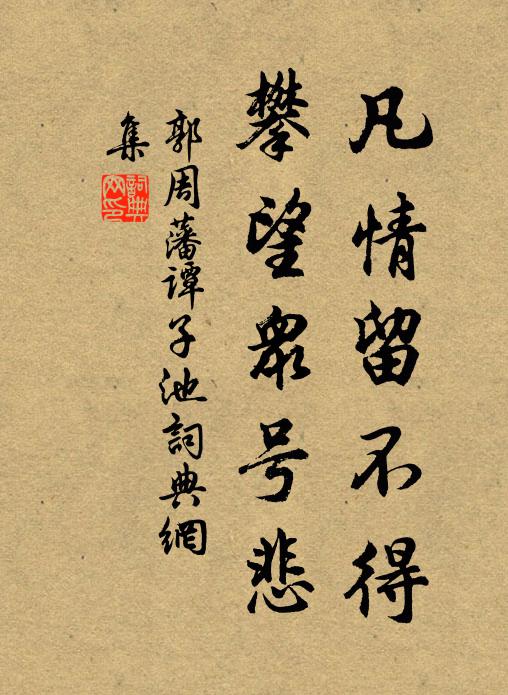 凡情留不得
攀望衆号悲
郭周藩谭子池詞典網
集
詞典
网印